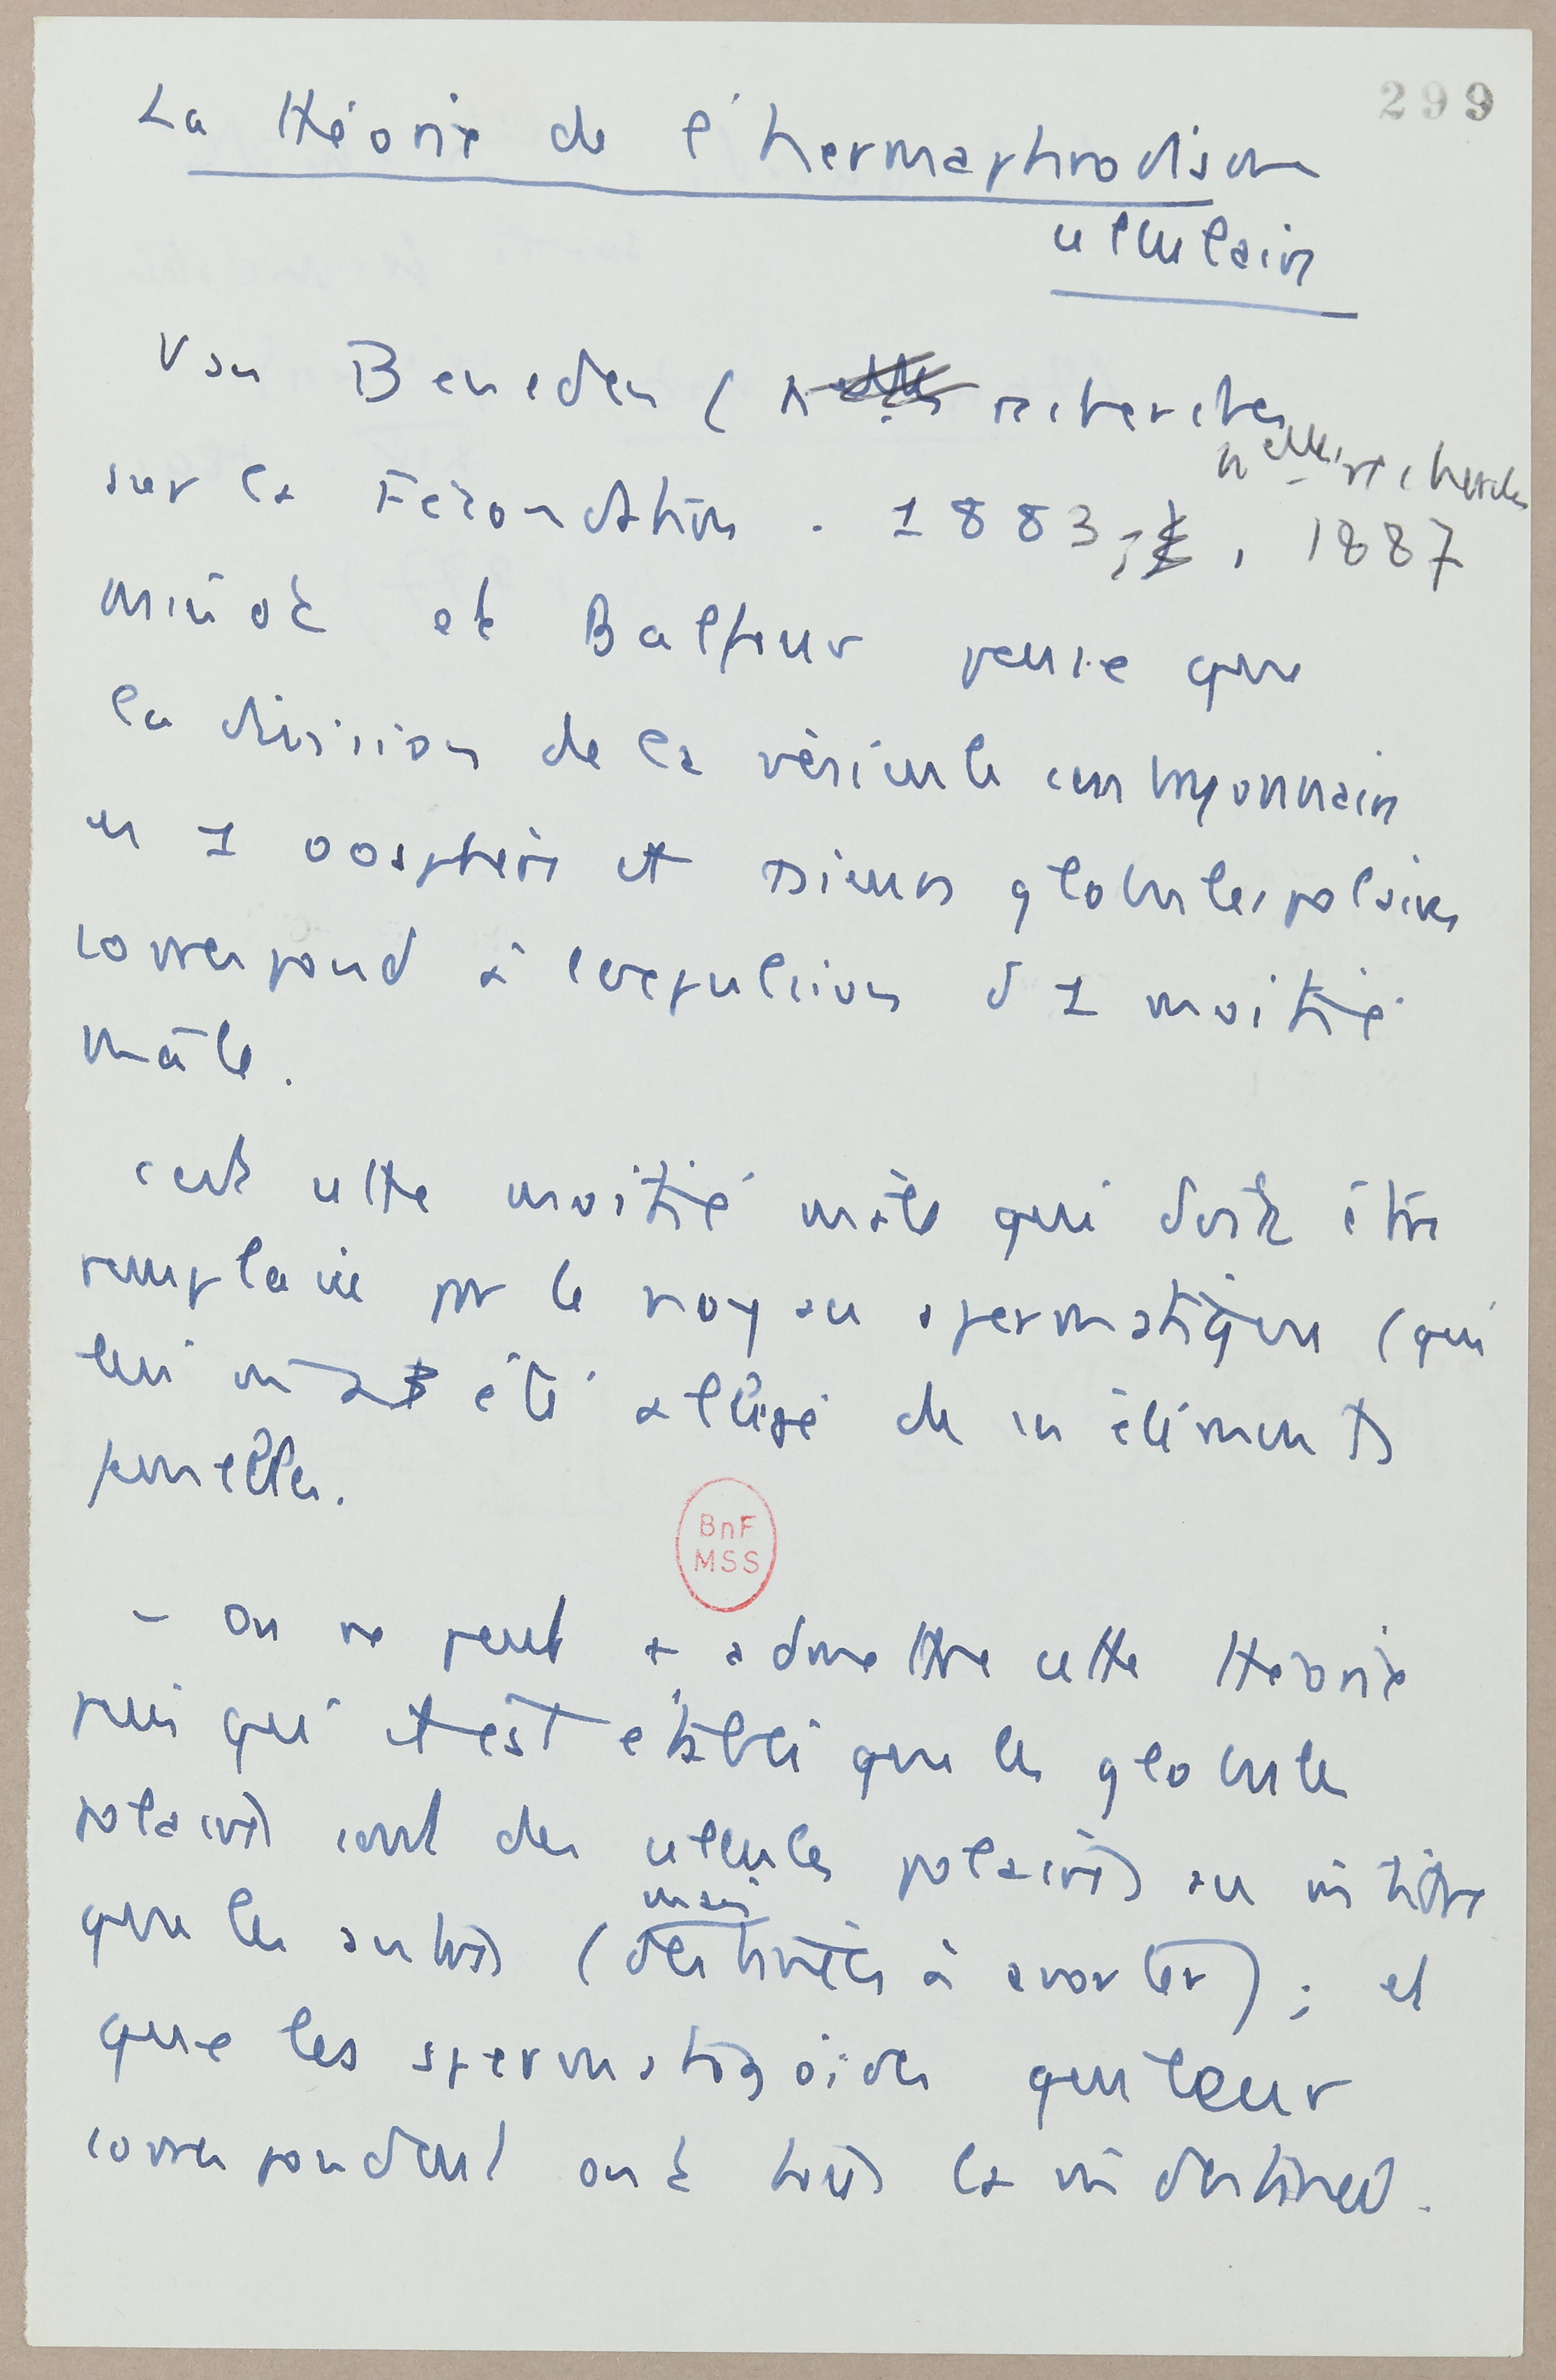 299
La théorie de l'hermaphrodisme
cellulaire
Van Beneden (recherches
nelles recherches
sur la Fécondation. 1883, , 1887
Minot et Balfour pense que
la division de la vésicule embryonnaire
en 1 oosphère et plusieurs globules polaires
correspond à l'expulsion d 1 moitié
mâle.
c'est cette moitié mâle qui doit être
remplacée par le noyau spermatique (qui
lui m a été allégé de ses éléments
femelles.
- on ne peut + admettre cette théorie
puisqu'il est établi que les globules
polaires sont des cellules polaires au m titre
mais
que les autres (destinées à avorter) ; et
que les spermatozoïdes qui leur
correspondent ont tous la m destinée.
BnF
MSS